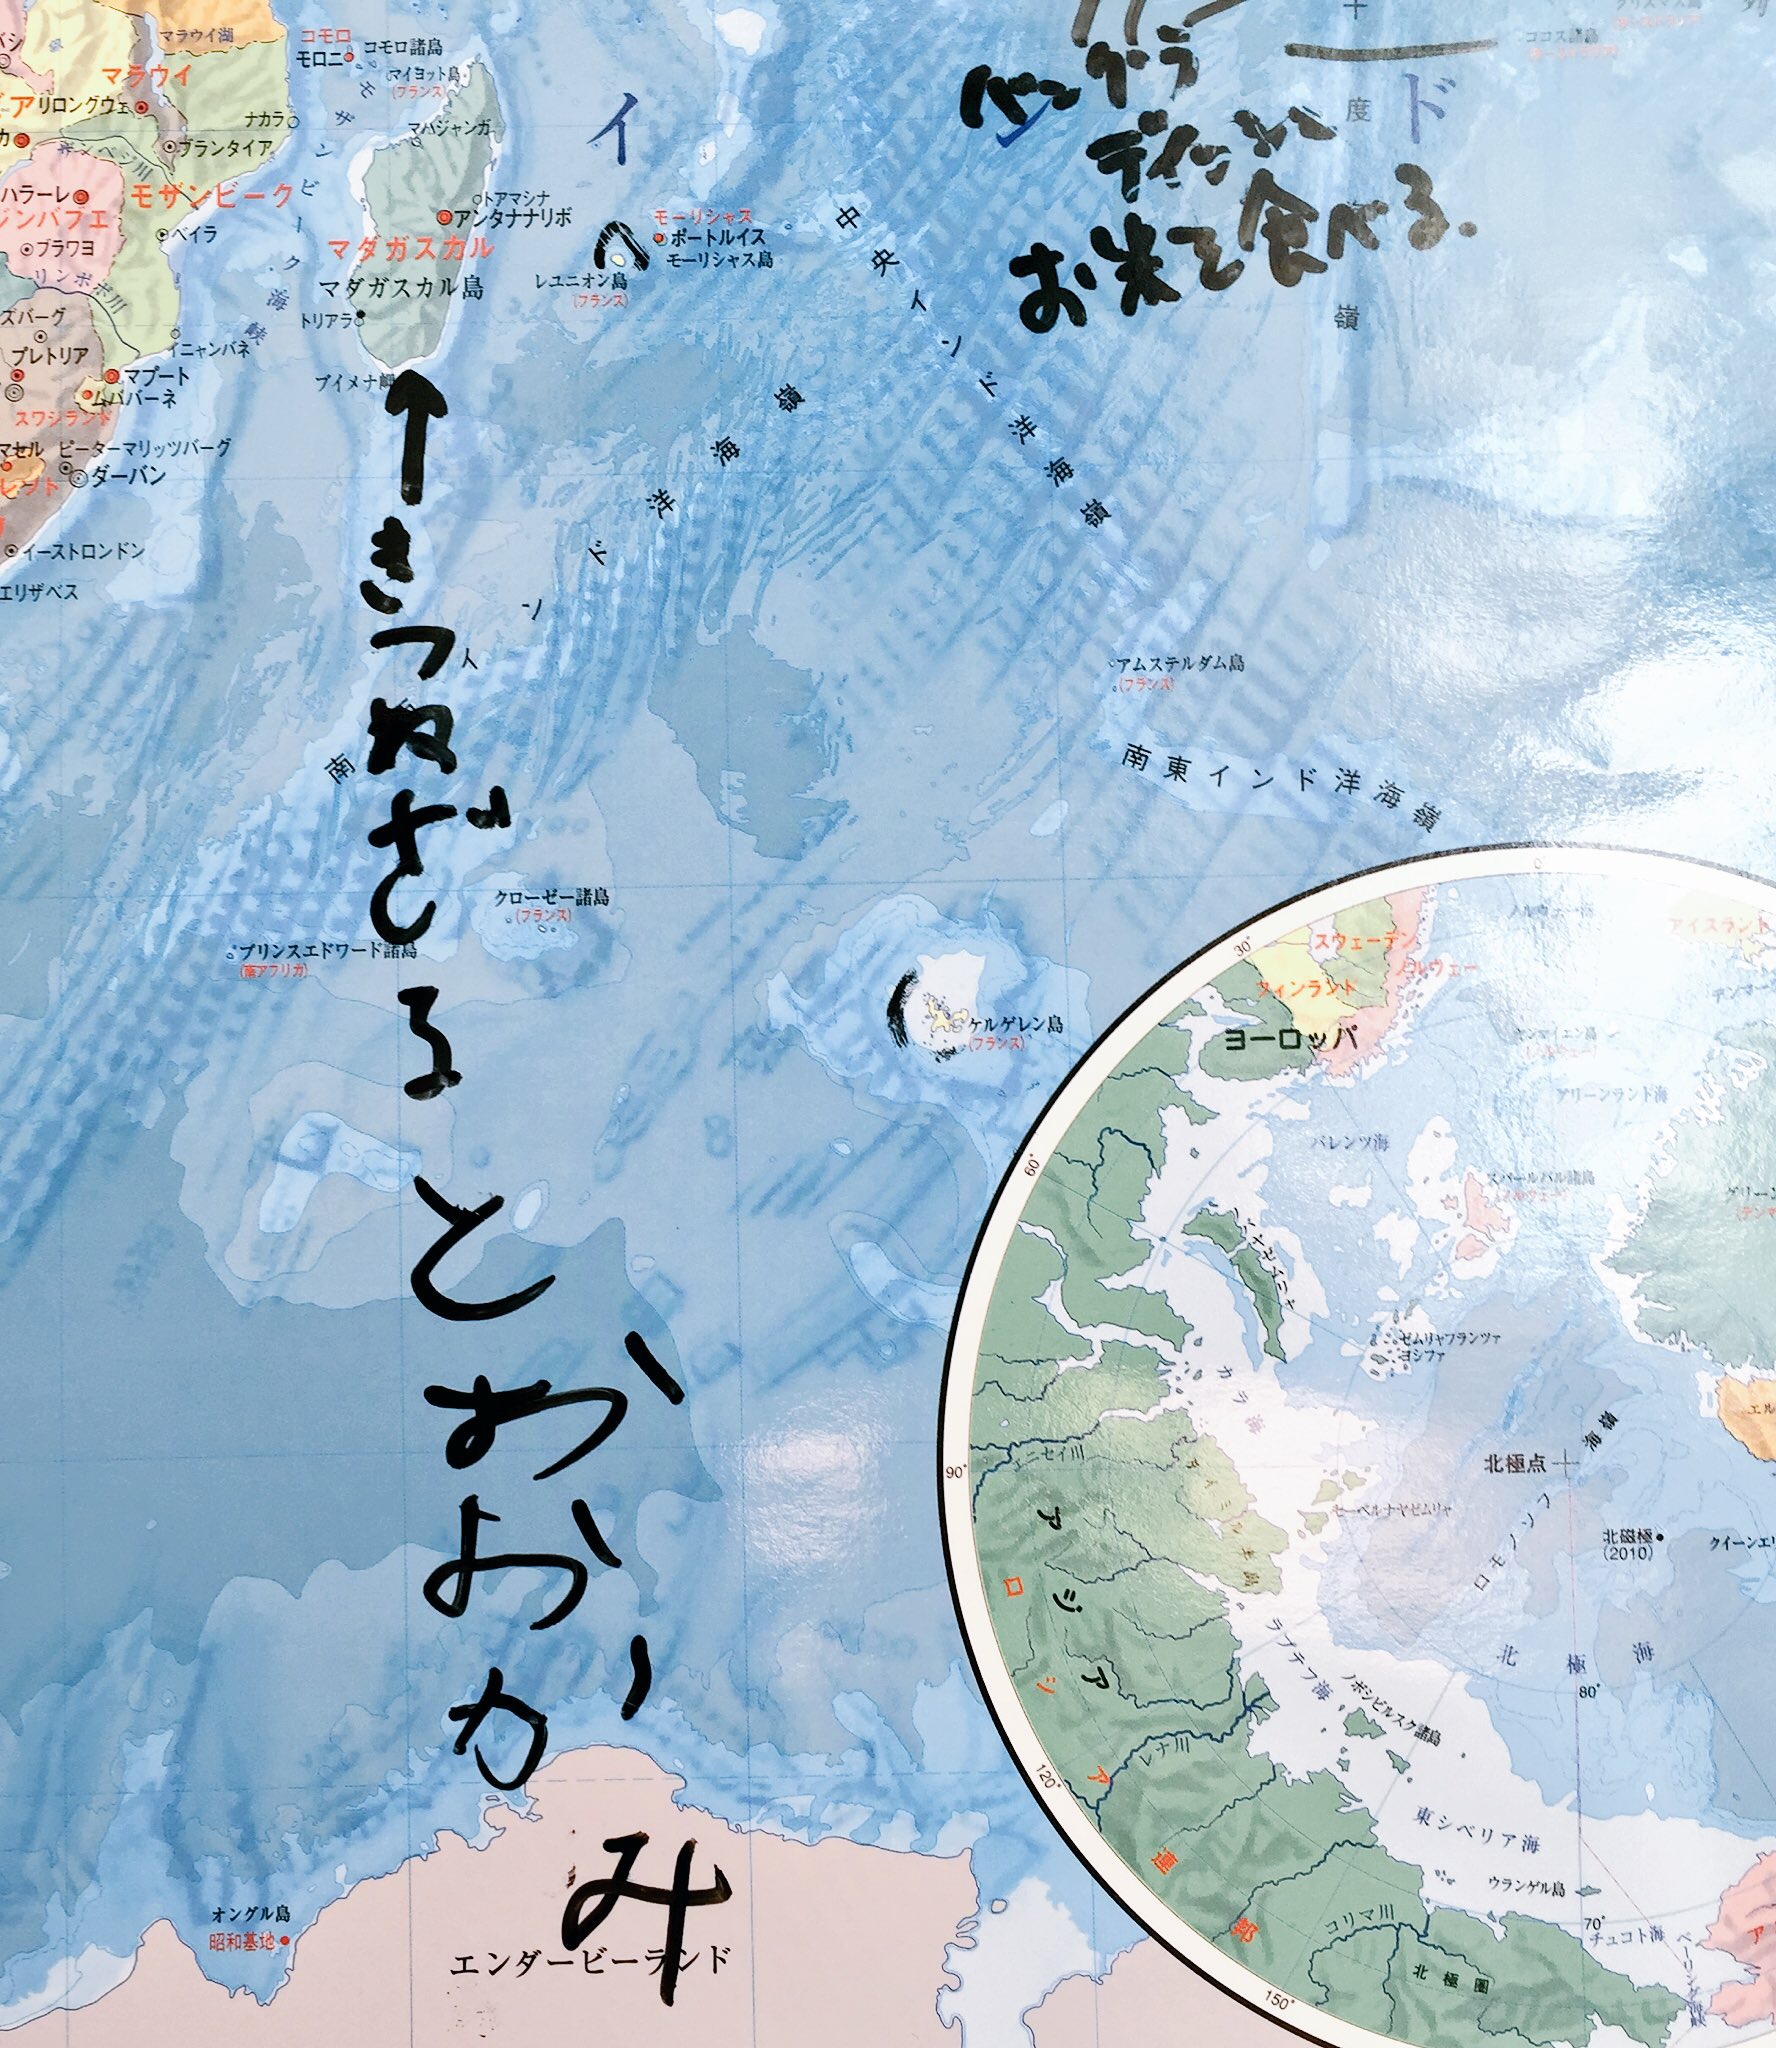 マラウイ湖
コモロ
モロニ
コモロ諸島
マイヨット島
(フランス)
マラウイ
リロングウェ
ナカラ
ブランタイア
マハジャンガ
モザンビーク海峡
ハラーレ
モザンビーク
ジンバブエ
ブラワヨ
ベイラ
リンポポ川
トアマシナ
アンタナナリボ
マダガスカル
マダガスカル島
トリアラ
モーリシャス
ポートルイス
モーリシャス島
レユニオン島
(フランス)
インド
ココス諸島
バングラ
ディッシュ
お米を食べる.
ズバーグ
プレトリア
イニャンバネ
マプート
ムババーネ
スワジランド
マセル
ピーターマリッツバーグ
ダーバン
イーストロンドン
エリザベス
中央インド洋海嶺
南西インド洋海嶺
↑きつねざる とおおかみ
アムステルダム島
(フランス)
南東インド洋海嶺
クローゼー諸島
(フランス)
プリンスエドワード諸島
(南アフリカ)
ケルゲレン島
(フランス)
オングル島
昭和基地
エンダービーランド
0°
30°
60°
90°
120°
150°
スウェーデン
ノルウェー
フィンランド
アイスランド
ヨーロッパ
ノルウェー海
グリーンランド海
バレンツ海
スバールバル諸島
(ノルウェー)
ノバヤゼムリャ
ゼムリャフランツァ
ヨシファ
カラ海
エニセイ川
北極点
ロモノソフ海嶺
セーベルナヤゼムリャ
北磁極
(2010)
アジア
ロシア連邦
ラプテフ海
北極海
80°
ノボシビルスク諸島
レナ川
東シベリア海
ウランゲル島
70°
チュコト海
コリマ川
北極圏
ベーリング海峡